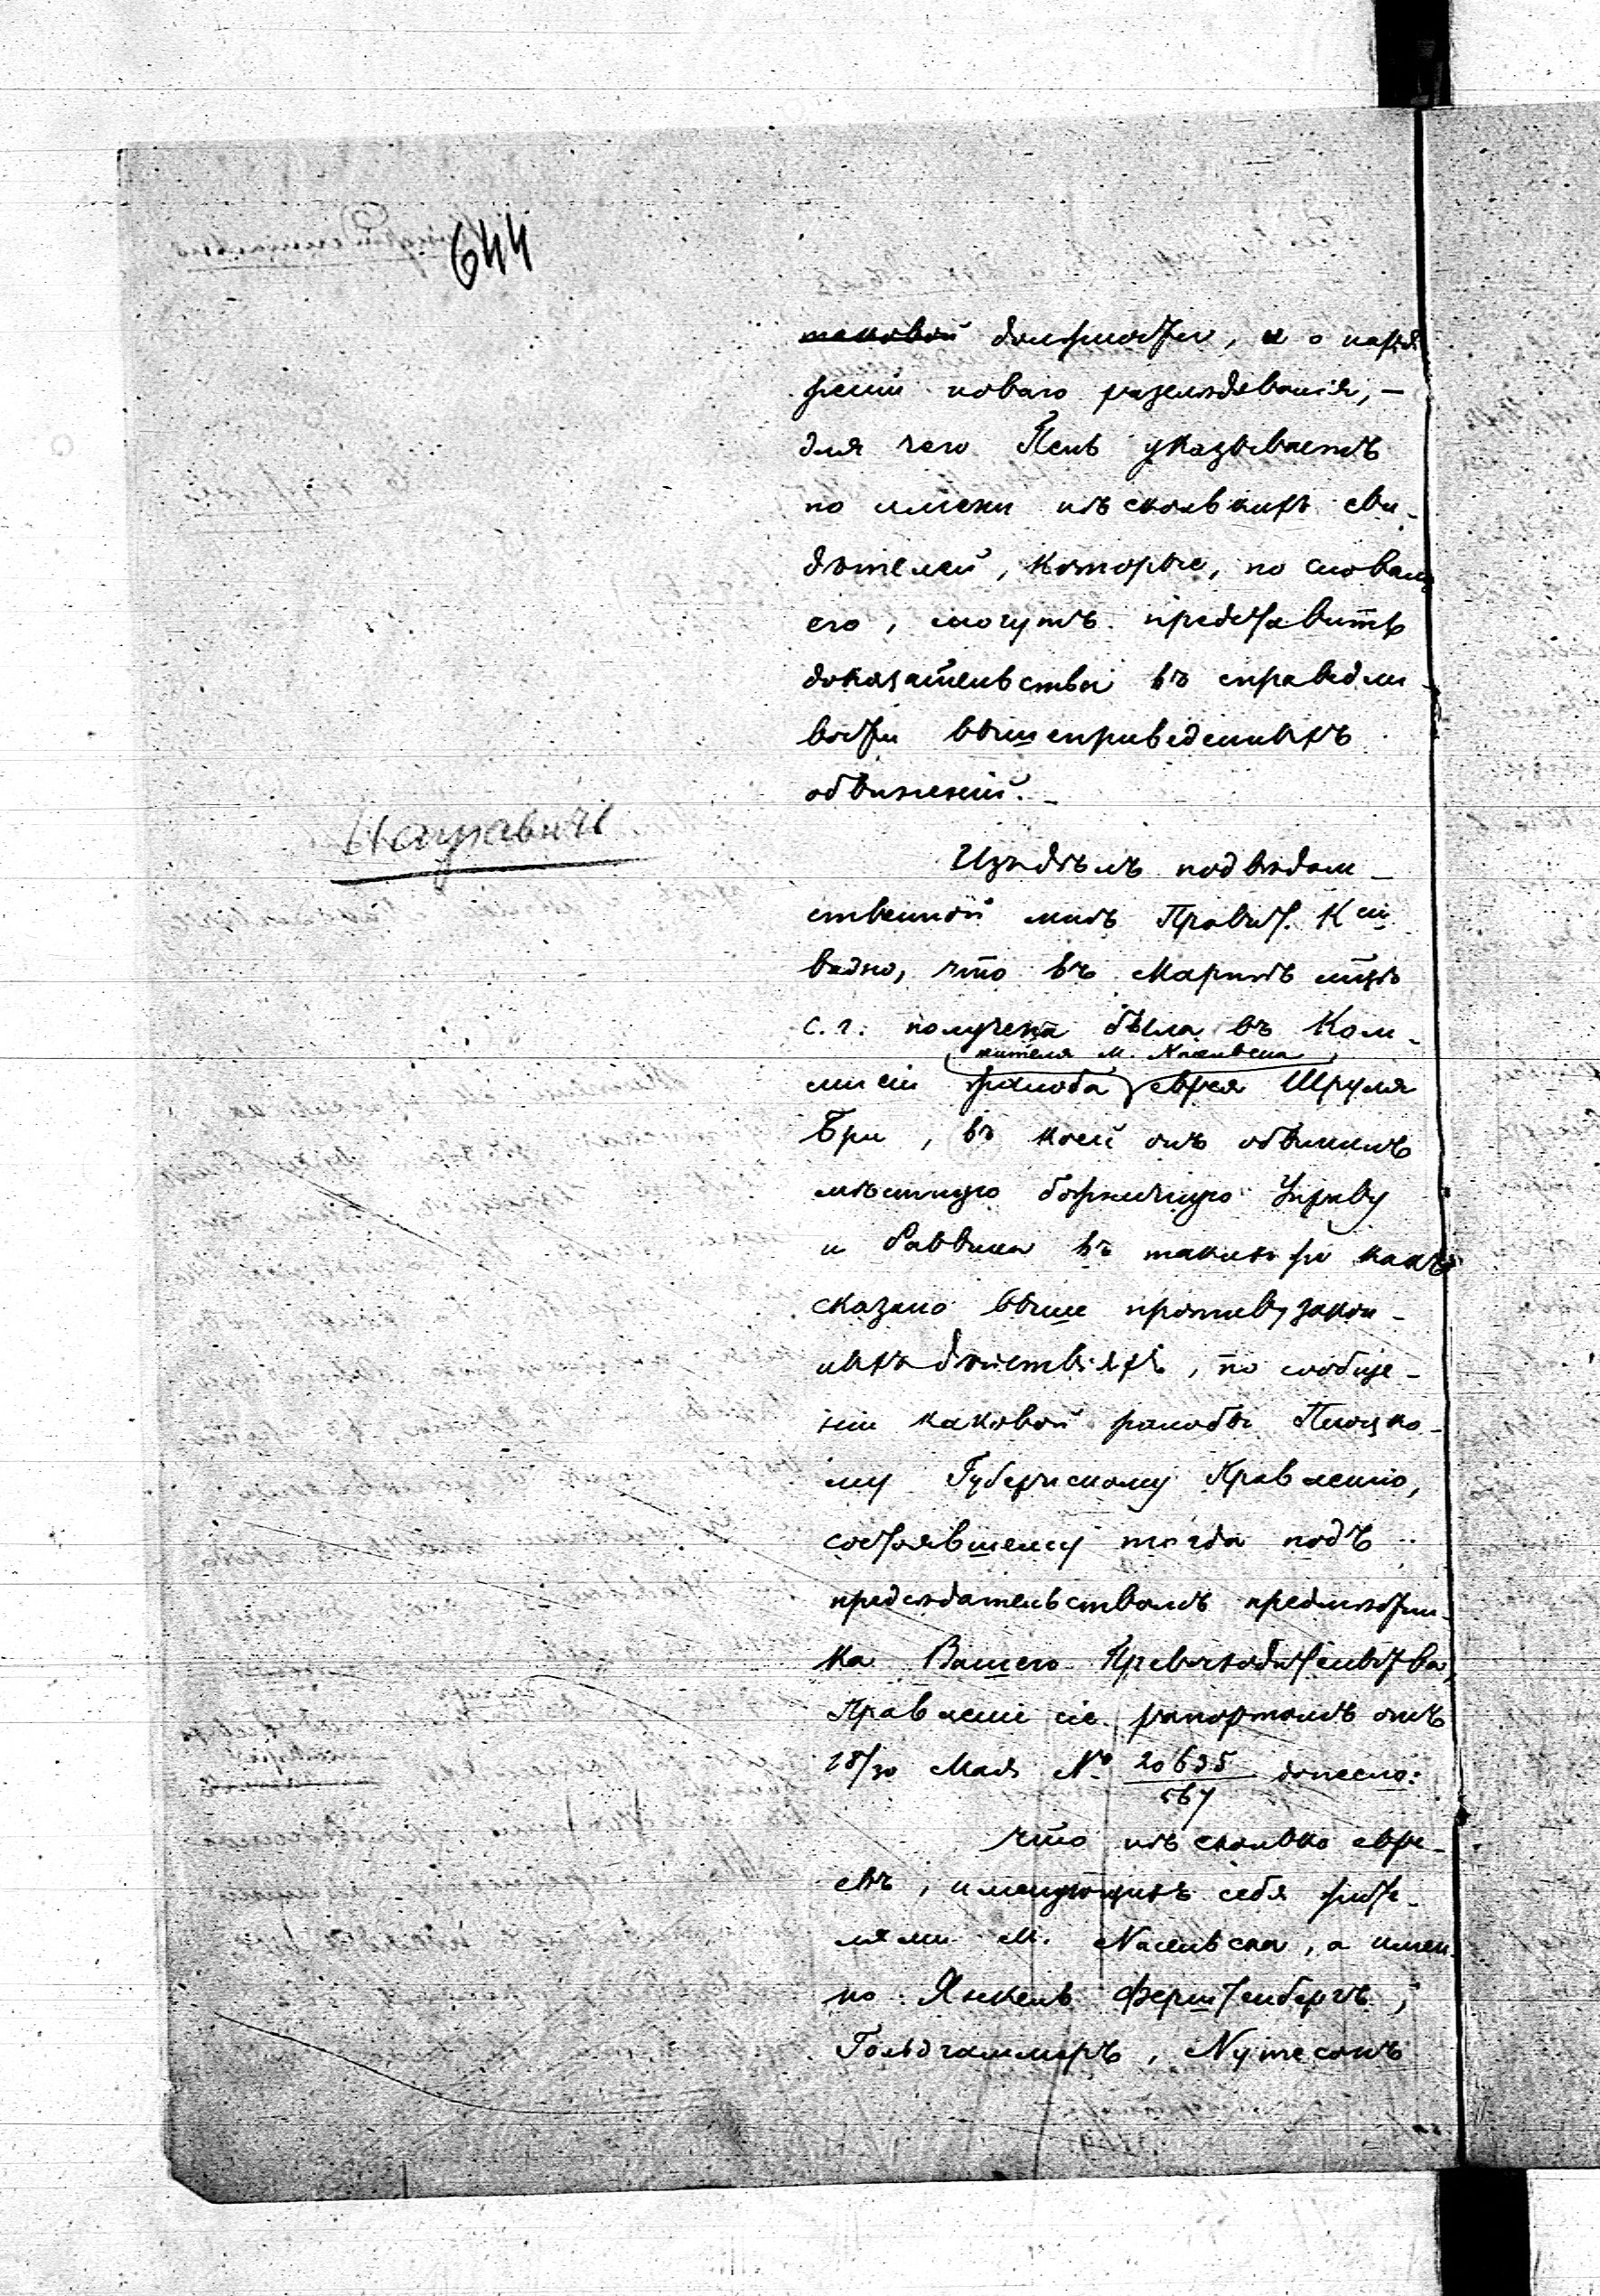 644
таковой должности, и о наря
женіи новаго разслѣдованія, —
для чего Пень указываетъ
по имени нѣсколькихъ сви-
дѣтелей, которые, по словамъ
его, могутъ представить
доказательства въ справедли-
вости вышеприведенныхъ
обвиненій. —
Изъ дѣлъ подвѣдом-
ственной мнѣ Правит. Ксіи
видно, что въ Мартѣ мцѣ
с. г. получена была въ Ком-
жителя м. Насельска
мисіи жалоба еврея Шруля
Бри, въ коей онъ обвинилъ
мѣстную божничную Управу
и Раввина въ такихъ же какъ
сказано выше противузакон-
ныхъ дѣйствіяхъ, по сообще-
ніи каковой жалобы Плоцко-
му Губернскому Правленію,
состоявшему тогда подъ
предсѣдательствомъ предмѣстни-
ка Вашего Превосходительства,
Правленіе сіе рапортомъ отъ
18/30 Мая № 20635/567 донесло:
что нѣсколько евре-
евъ, именующихъ себя жите-
лями м. Насельска, а имен-
но: Янкель Ферштенбергъ,
Гольдгаммеръ, Нутесонъ